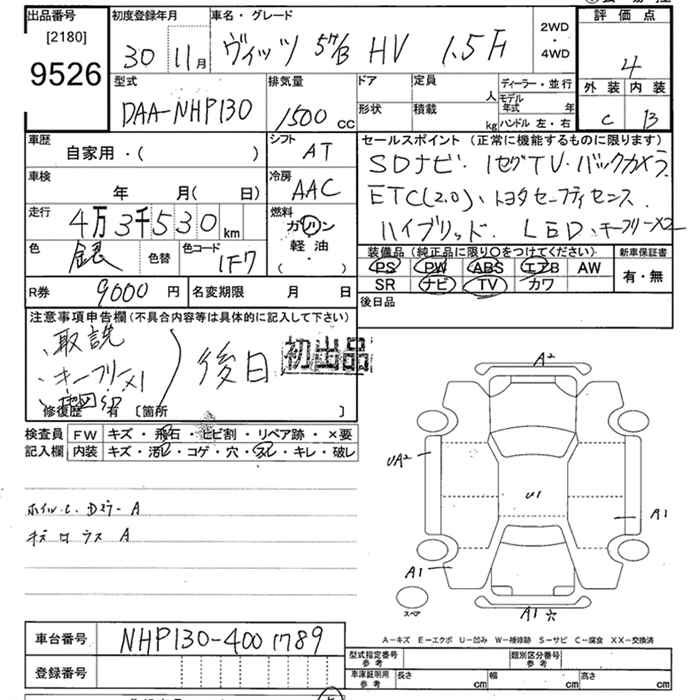 出品番号
[2180]
9526
初度登録年月
30 11月
車名・グレード
ヴィッツ 5ドア/B HV 1.5F
2WD
・
4WD
評価点
4
外装 内装
C B
型式
DAA-NHP130
排気量
1500 cc
ドア
形状
定員
人
積載
kg
ディーラー・並行
モデル年式 年
ハンドル 左・右
車歴
自家用・( )
シフト
AT
車検
年 月( 日)
冷房
AAC
走行
4万3千530km
燃料
ガソリン
軽油
( ・ )
色
銀
色替
色コード
1F7
R券
9000円
名変期限 月 日
セールスポイント (正常に機能するものに限ります)
SDナビ・1セグTV・バックカメラ
ETC(2.0)、トヨタセーフティセンス
ハイブリッド. LED、キーフリーX2
装備品(純正品に限り〇をつけてください)
PS PW ABS エアB AW
SR ナビ TV カワ
新車保証書
有・無
後日品
注意事項申告欄(不具合内容等は具体的に記入して下さい)
、取説
、キーフリーX1
、地図SD
後日
初出品
修復歴 有 [箇所 ]
検査員
記入欄
FW キズ・飛石・ヒビ割・リペア跡・×要
内装 キズ・汚レ・コゲ・穴・スレ・キレ・破レ
ホイルC. A
A
A2
UA2
U1
A1
A1
スペア
A1
A-キズ E-エクボ U-凹み W-補修跡 S-サビ C-腐食 XX-交換済
車台番号
NHP130-4001789
登録番号
型式指定番号
参考
類別区分番号
参考
車庫証明用
参考
長さ cm
幅 cm
高さ cm